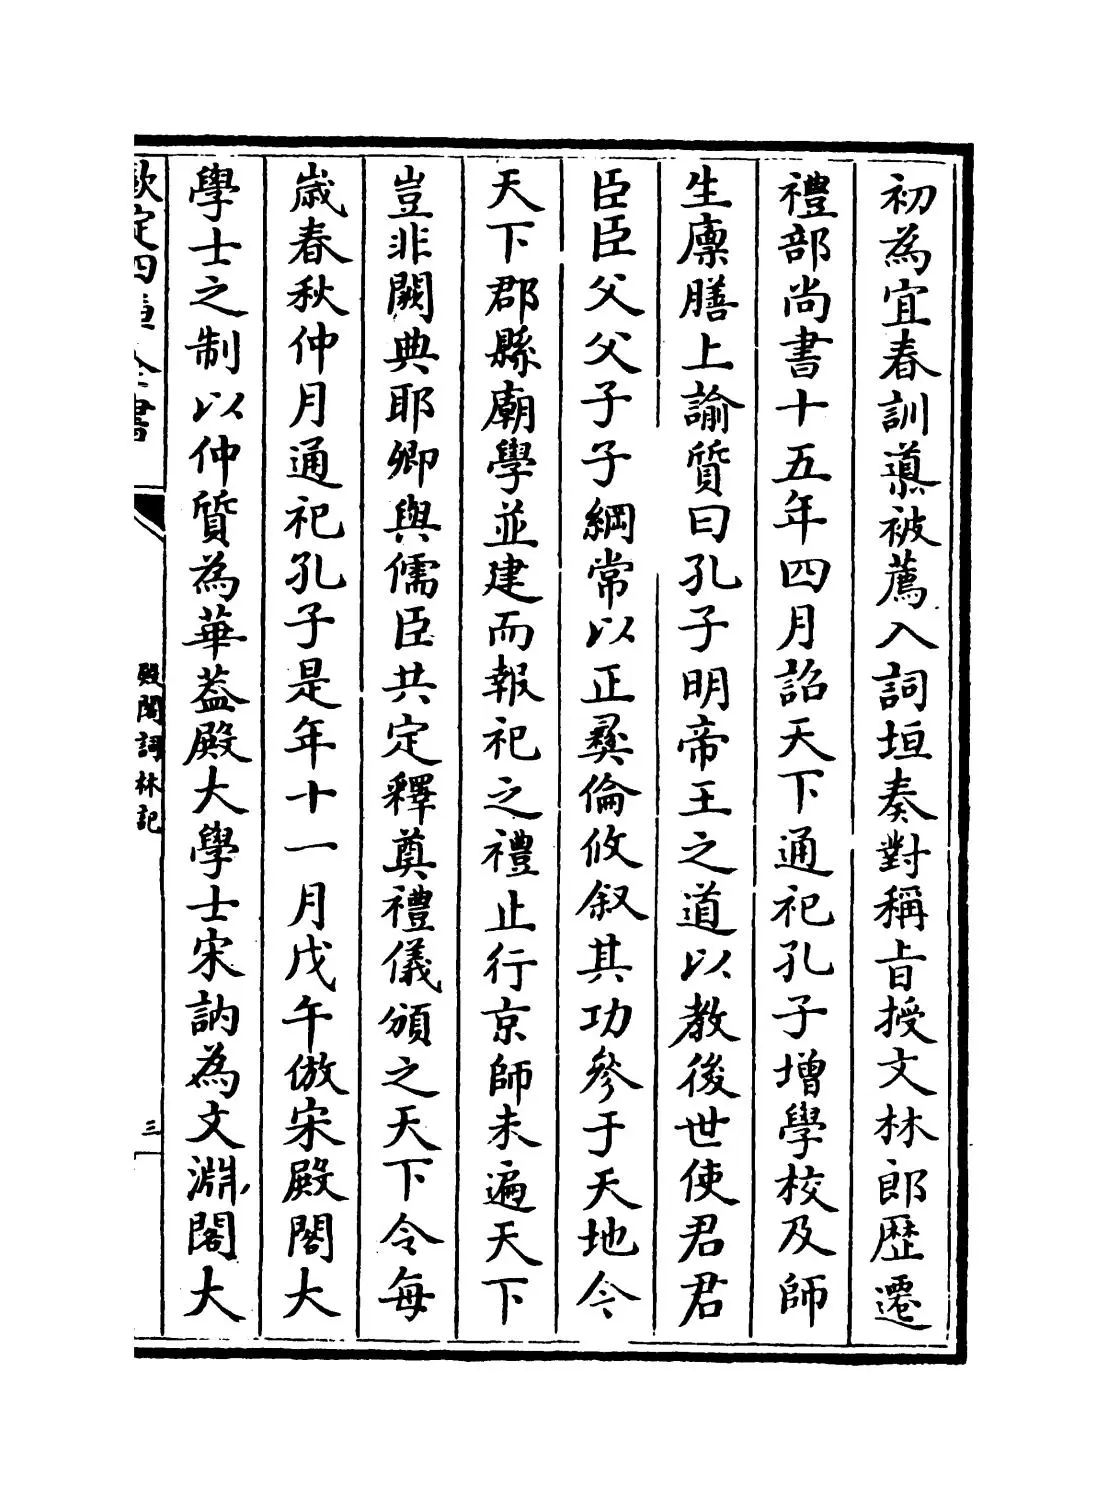 初為宜春訓𨗳被薦入詞垣奏對稱旨授文林郎歴遷
禮部尚書十五年四月詔天下通祀孔子增學校及師
生廪膳上諭質曰孔子明帝王之道以教後世使君君
臣臣父父子子綱常以正彞倫攸叙其功參于天地今
天下郡縣廟學並建而報祀之禮止行京師未遍天下
豈非闕典耶卿與儒臣共定釋奠禮儀頒之天下令每
歳春秋仲月通祀孔子是年十一月戊午倣宋殿閣大
學士之制以仲質為華葢殿大學士宋訥為文淵閣大
欽定四庫全書
殿閣詞林記
三